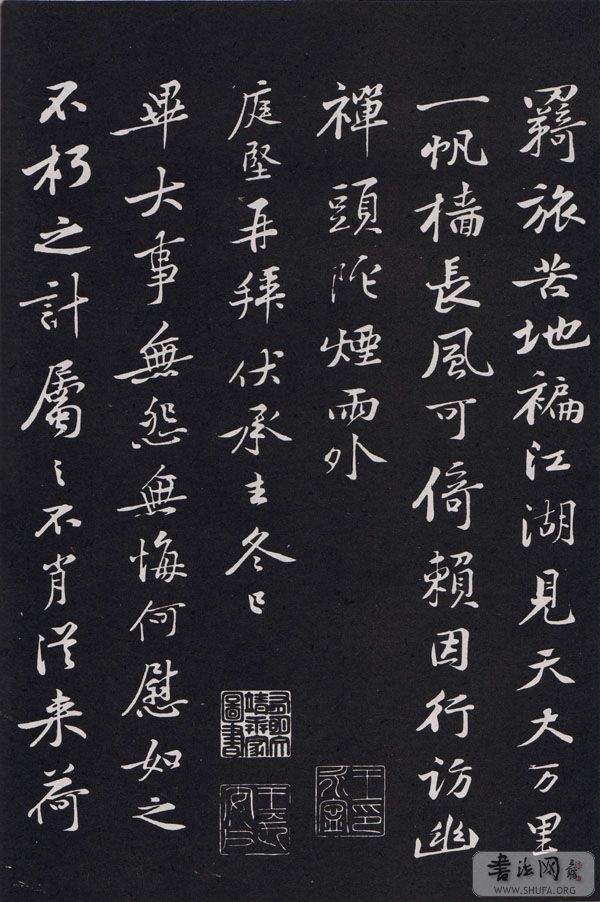 羇旅苦地褊江湖見天大万里
一帆檣長風可倚賴因行訪幽
禪頭陀煙雨外
庭堅再拜伏承去冬已
畢大事無怨無悔何慰如之
不朽之計屬之不肖從来荷
書法网
WWW.SHUFA.ORG